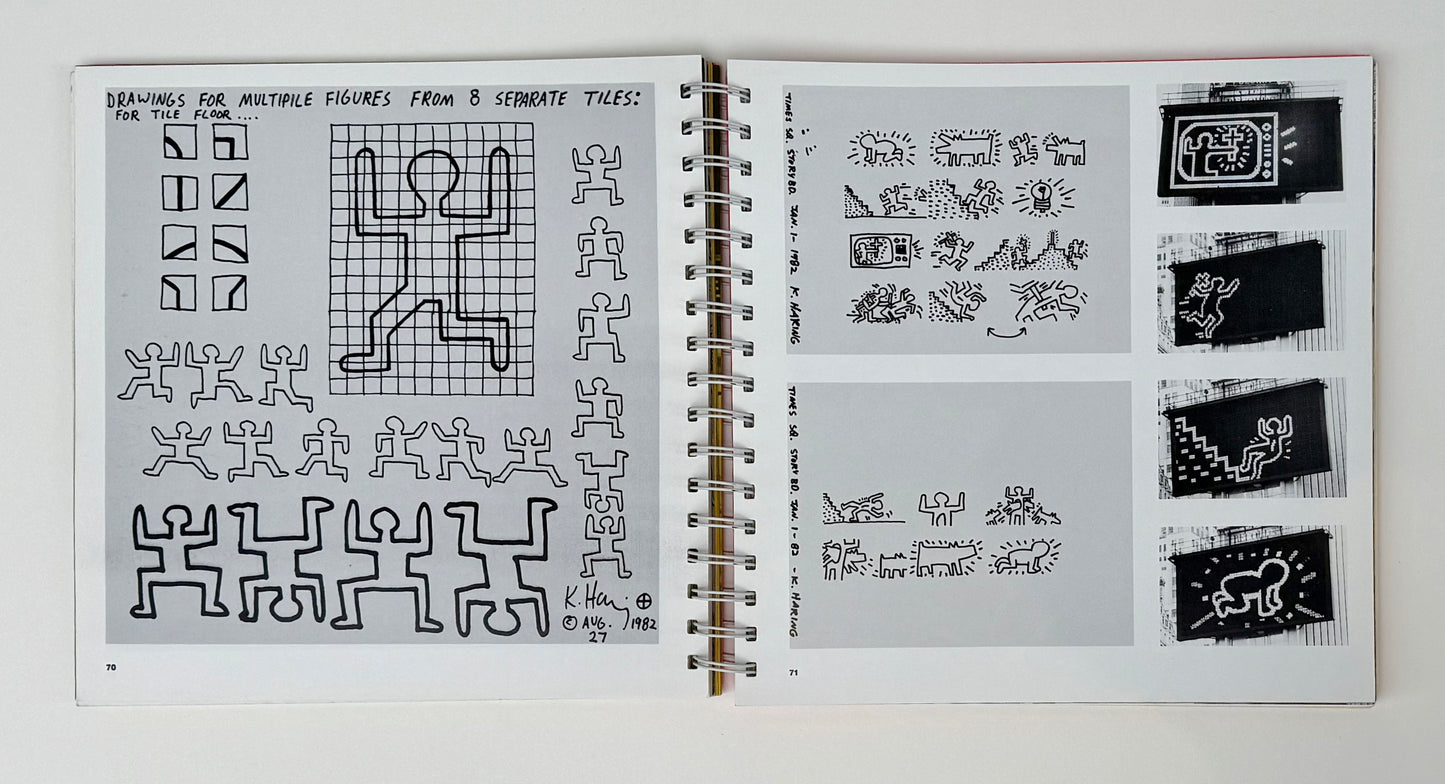 DRAWINGS FOR MULTIPILE FIGURES FROM 8 SEPARATE TILES:
FOR TILE FLOOR ....
K. Haring
© AUG. 1982
27
70
TIMES SQ. STORYBD. JAN. 1 - 1982 K. HARING
TIMES SQ. STORYBD. JAN. 1 - 82 - K. HARING
71